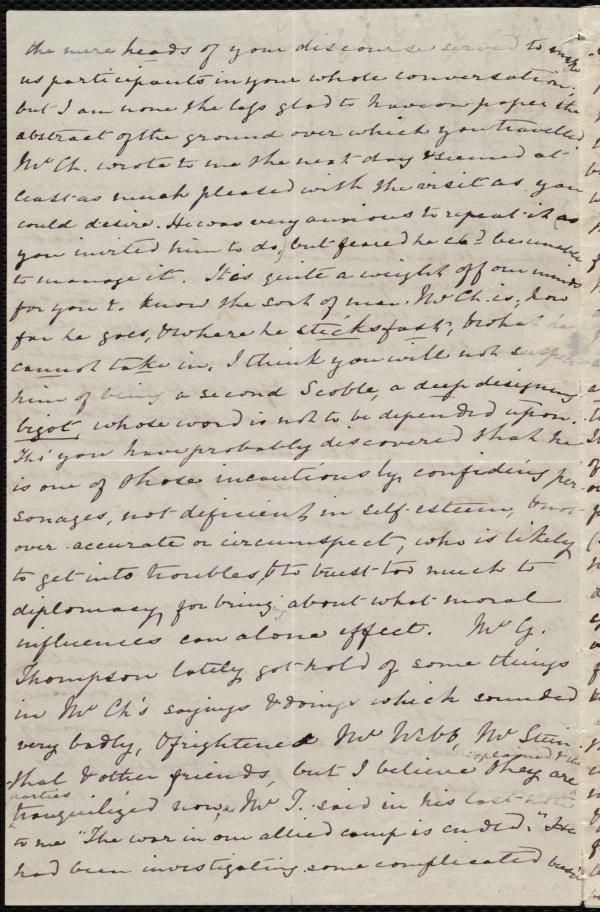 the mere heads of your discourse served to make
us participants in your whole conversation;
but I am none the less glad to have on paper the
abstract of the ground over which you travelled
Mr Ch. wrote to me the next day & seemed at
least as much pleased with the visit as you
could desire. He was very anxious to repeat it (as
you invited him to do,) but feared he shd be unable
to manage it. It is quite a weight off our minds
for you to know the sort of man Mr Ch. is, how
far he goes, & where he sticks fast, & what he
cannot take in. I think you will not suspect
him of being a second Scoble, a deep designing
bigot, whose word is not to be depended upon.
Tho' you have probably discovered that he
is one of those incautiously confiding per-
sonages, not deficient in self-esteem, & not
over-accurate or circumspect, who is likely
to get into troubles, & to trust too much to
diplomacy for bringing about what moral
influences can alone effect. Mr G.
Thompson lately got hold of some things
in Mr Ch's sayings & doings which sounded
very badly, & frightened Mr Webb, Mr Stein-
thal & other friends, but I believe they are
explained & the
parties
tranquilized now, Mr T. said in his last note
to me "The war in our allied camp is ended." He
had been investigating some complicated